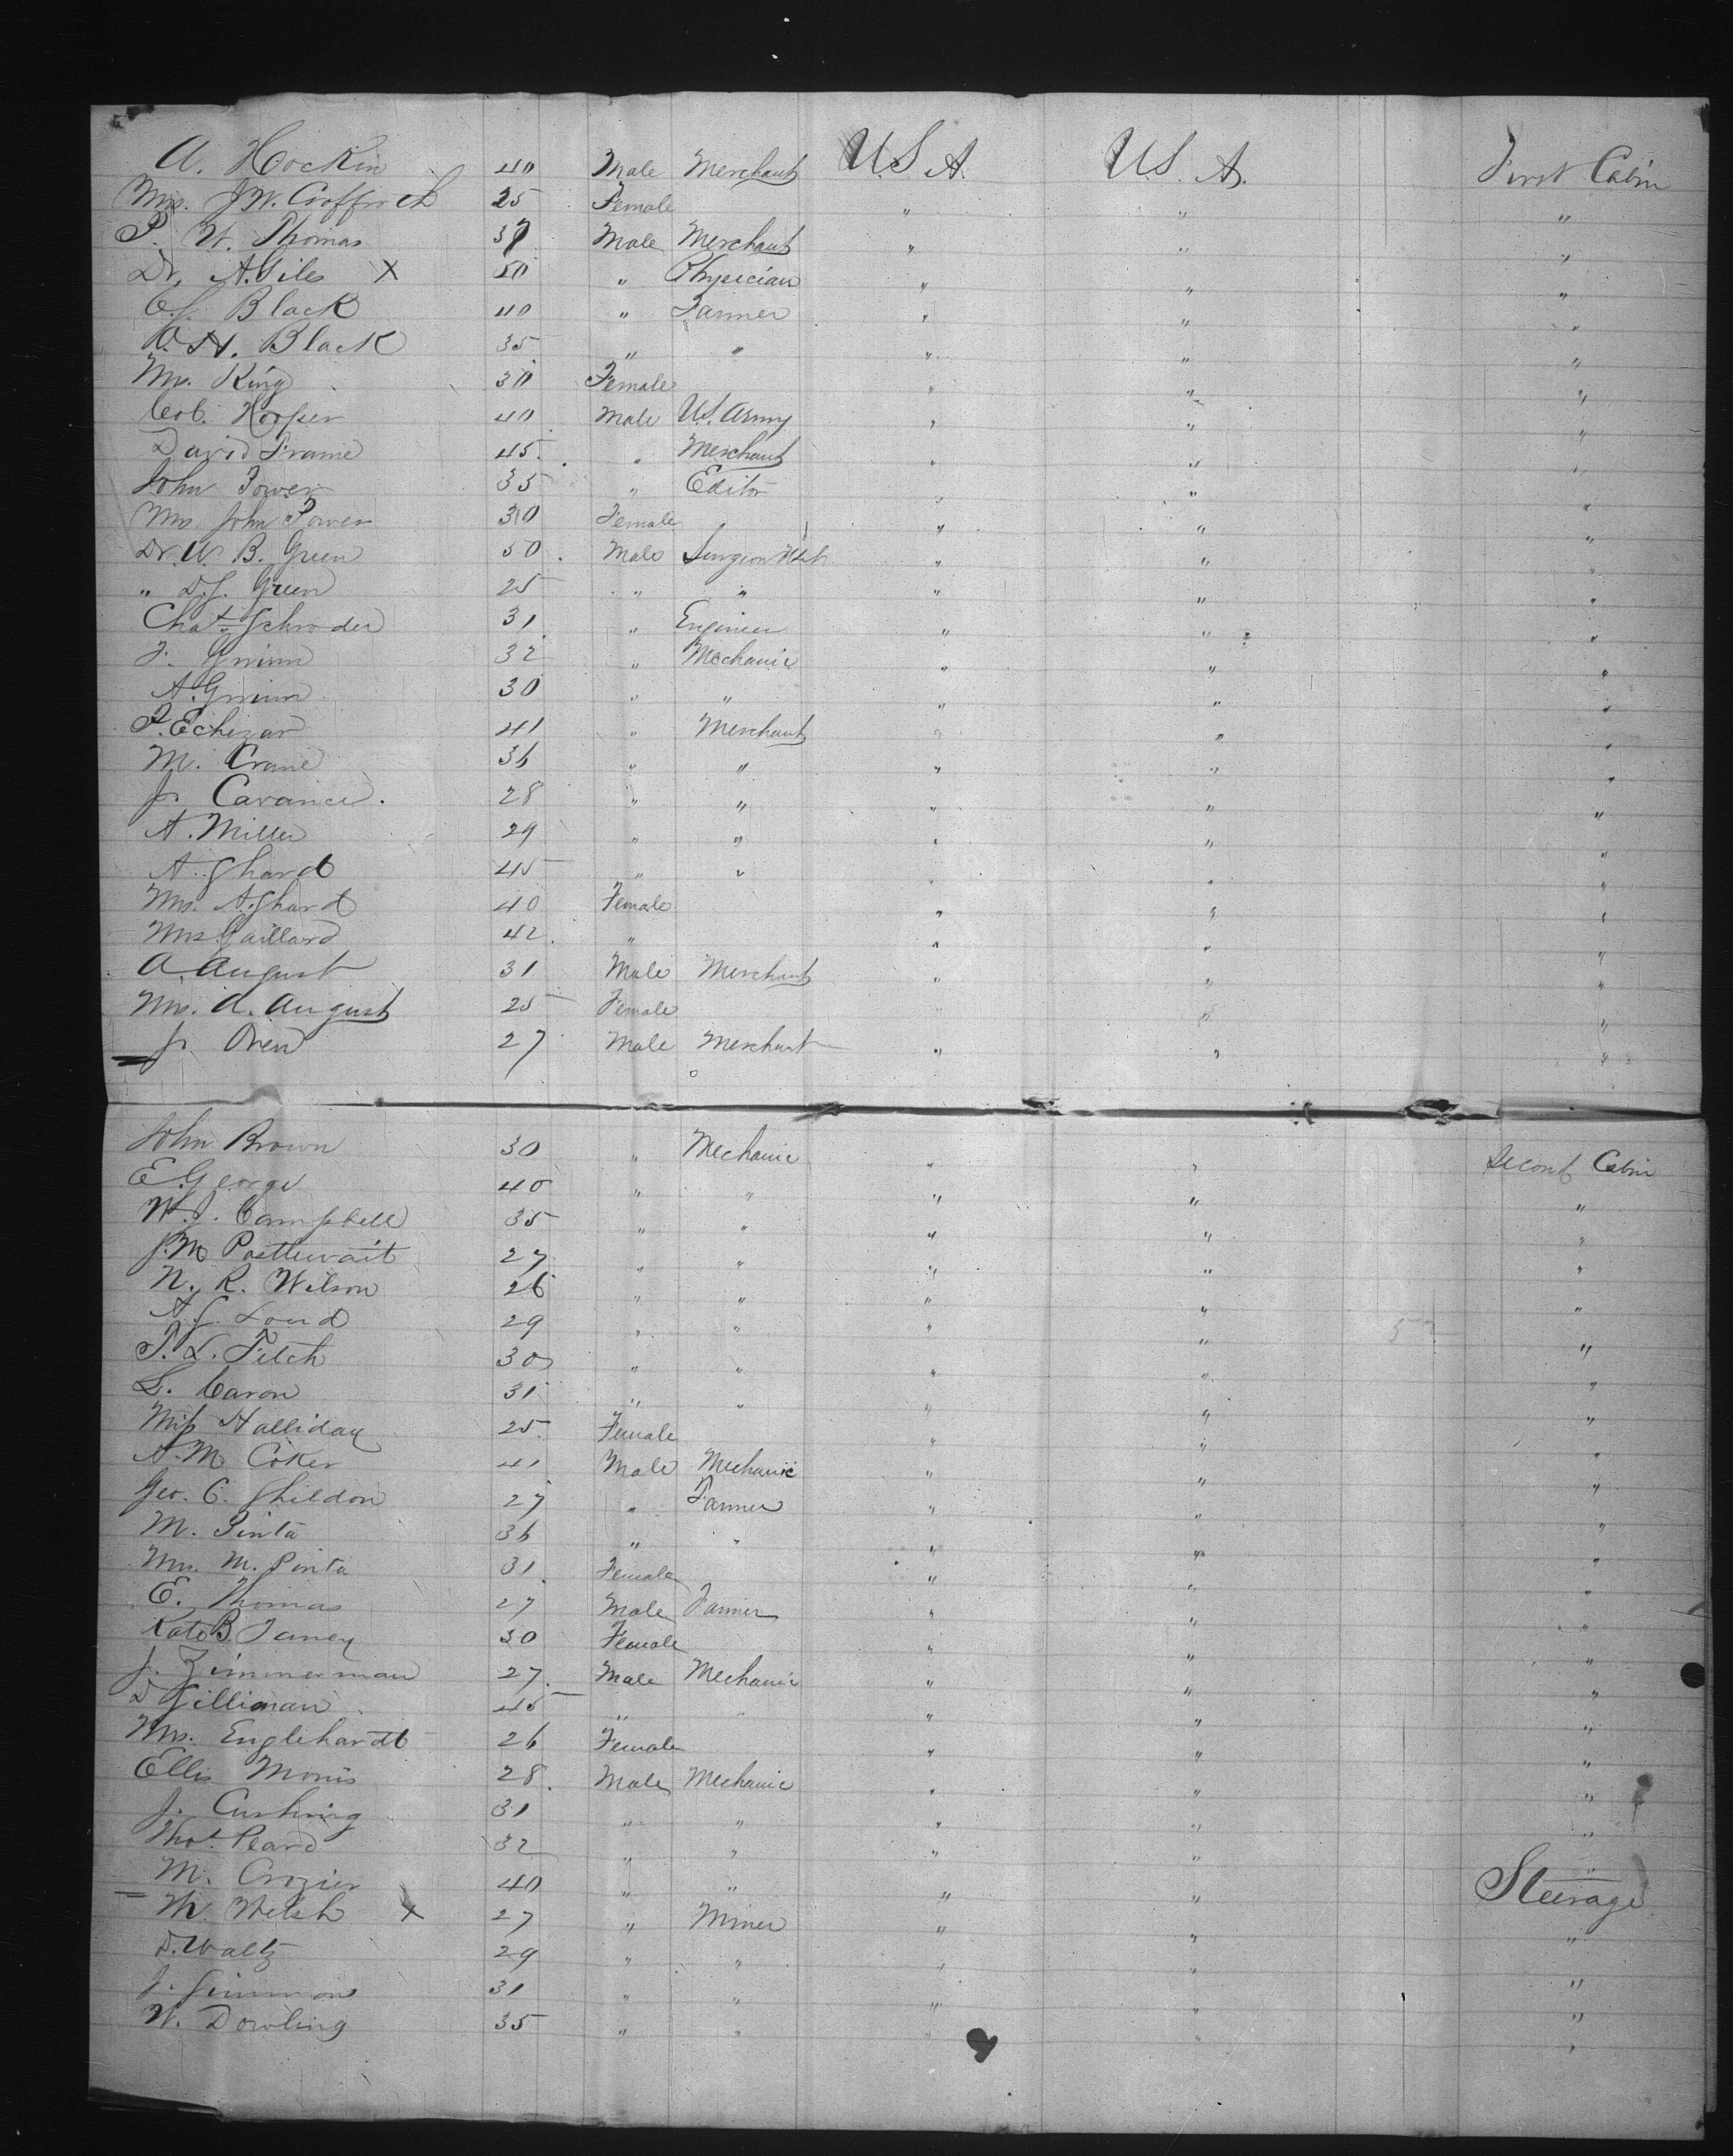 A. Hockin 40 Male Merchant U.S.A. U.S.A. First Cabin
Mrs. J.W. 25 Female " " "
P. W. Thomas 37 Male Merchant " " "
Dr. A. Giles X 50 " Physician " " "
C.J. Black 40 " Farmer " " "
A. H. Black 35 " " " " "
Mrs. King 30 Female " " "
Col. Hooper 40 Male U.S. Army " " "
David Frame 45 " Merchant " " "
John Power 35 " Editor " " "
Mrs. John Power 30 Female " " "
Dr. W. B. Green 50 Male Surgeon " " "
" D.J. Green 25 " " " " "
Chas. Schroder 31 " Engineer " " "
J. Gwinn 32 " Mechanic " " "
A. Gwinn 30 " " " " "
F. Echizar 41 " Merchant " " "
M. Crane 36 " " " " "
J. Cavance. 28 " " " " "
A. Miller 29 " " " " "
A. Ghard 45 " " " " "
Mrs. A. Ghard 40 Female " " "
Mrs Gaillard 42 " " " "
A. August 31 Male Merchant " " "
Mrs. A. August 25 Female " " "
J. Oren 27 Male Merchant " " "
John Brown 30 " Mechanic " " Second Cabin
E. George 40 " " " " "
W. J. Campbell 35 " " " " "
J.M. Postlewait 27 " " " " "
N. R. Wilson 26 " " " " "
A. J. Loud 29 " " " " "
T. L. Fitch 30 " " " " "
L. Caron 31 " " " " "
Miss Halliday 25 Female " " "
A. M. Coker 41 Male Mechanic " " "
Geo. C. Shildon 27 " Farmer " " "
M. Pinta 36 " " " " "
Mrs. M. Pinta 31 Female " " "
E. Thomas 27 Male Farmer " " "
Kate B. Taney 30 Female " " "
J. Zimmerman 27 Male Mechanic " " "
D Gilliman 45 " " " " "
Mrs. Englehardt 26 Female " " "
Ellis Morris 28 Male Mechanic " " "
J. Cushing 31 " " " " "
Thos. Peard 32 " " " " "
M. Crozier 40 " " " " Steerage
M. Welsh X 27 " Miner " " "
D. Waltz 29 " " " " "
J. 31 " " " " "
W. Dowling 35 " " " " "